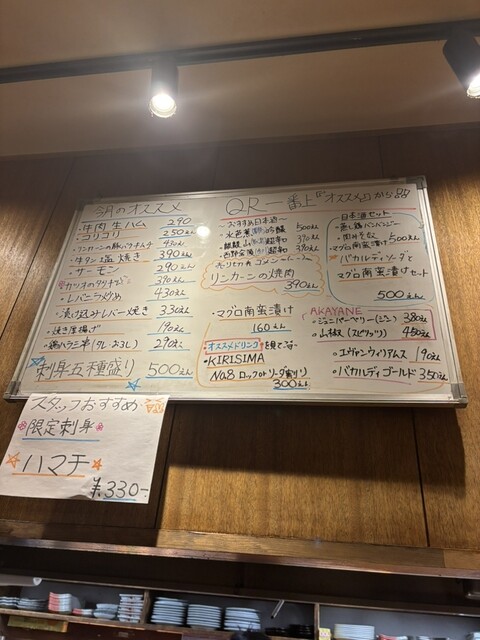 今月のオススメ
・牛肉生ハム 290
・コリコリ 250えん
・牛タン塩焼き 390えん
・サーモン 290えん
・レバニラ炒め 430えん
・漬け込みレバー焼き 330えん
・焼き厚揚げ 190えん
・鶏ハラミ串(タレorしお) 290えん
刺身五種盛り 500えん
QR一番上"オススメ"から
〜おすすめ日本酒〜
リンカーンの焼肉
390えん
・マグロ南蛮漬け
160えん
・オススメドリンク
・KIRISIMA
No.8 ロックorソーダ割り
300えん
日本酒セット
・マグロ南蛮漬け 500えん
・バカルディソーダと
マグロ南蛮漬けセット
500えん
AKAYANE
・ジュニパーベリー(ジン) 380えん
・山椒(スピリッツ) 450えん
・エヴァンウィリアムス 190えん
・バカルディゴールド 350えん
スタッフおすすめ
限定刺身
ハマチ
¥330-